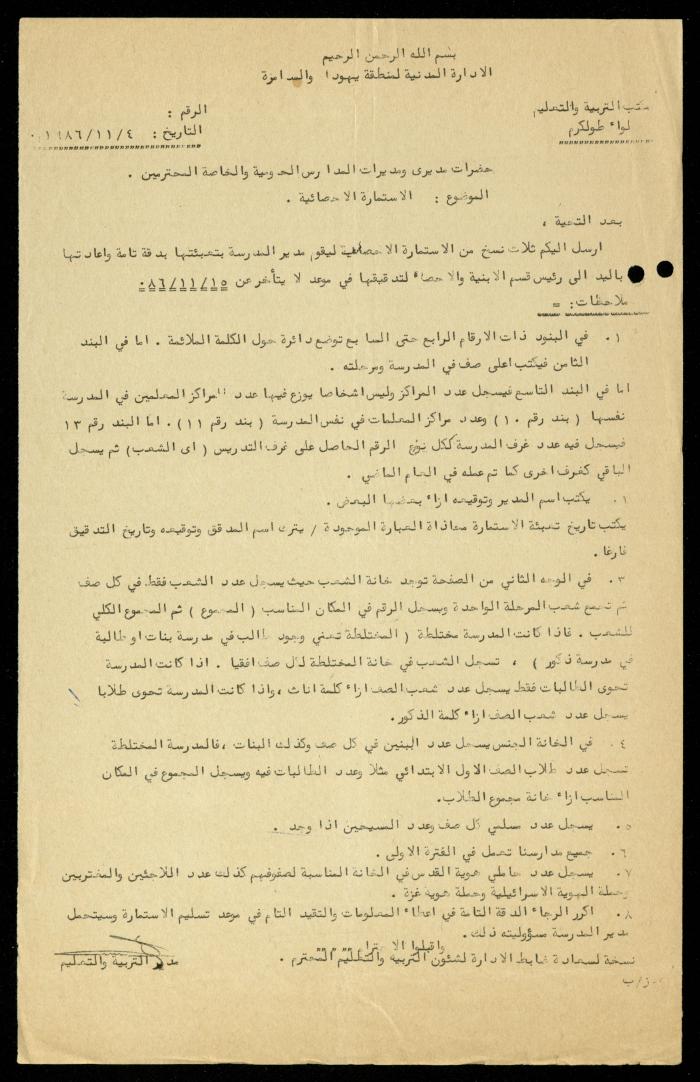 بسم الله الرحمن الرحيم
الادارة المدنية لمنطقة يهودا والسامرة
مكتب التربية والتعليم
لواء طولكرم
الرقم :
التاريخ : ١٩٨٦/١١/٤
حضرات مديرى ومديرات المدارس الحكومية والخاصة المحترمين .
الموضوع : الاستمارة الاحصائية .
بعد التحية ،
ارسل اليكم ثلاث نسخ من الاستمارة الاحصائية ليقوم مدير المدرسة بتعبئتها بدقة تامة واعادتها
باليد الى رئيس قسم الابنية والاحصاء لتدقيقها في موعد لا يتأخر عن ٨٦/١١/١٥٠
ملاحظات: =
١. في البنود ذات الارقام الرابع حتى السابع توضع دائرة حول الكلمة الملائمة . اما في البند
الثامن فيكتب اعلى صف في المدرسة ومرحلته .
اما في البند التاسع فيسجل عدد المراكز وليس اشخاصا يوزع فيها عدد المراكز المعلمين في المدرسة
نفسها ( بند رقم ١٠) وعدد مراكز المعلمات في نفس المدرسة ( بند رقم ١١) . اما البند رقم ١٣
فيسجل فيه عدد غرف المدرسة ككل يوزع الرقم الحاصل على غرف التدريس ( اى الشعب) ثم يسجل
الباقي كغرف اخرى كما تم عمله في العام الماضي .
١. يكتب اسم المدير وتوقيعه ازاء بعضها البعض .
يكتب تاريخ تعبئة الاستمارة معاذاة العبارة الموجودة / يترك اسم المدقق وتوقيعه وتاريخ التدقيق
فارغا .
٣. في الوجه الثاني من الصفحة توجد خانة الشعب حيث يسجل عدد الشعب فقط في كل صف
ثم تجمع شعب المرحلة الواحدة ويسجل الرقم في المكان المناسب ( المجموع ) ثم المجموع الكلي
للشعب . فاذا كانت المدرسة مختلطة ( المختلطة تعني وجود طالب في مدرسة بنات او طالبة
في مدرسة ذكور ) ، تسجل الشعب في خانة المختلطة لكل صف افقيا . اذا كانت المدرسة
تحوى الطالبات فقط يسجل عدد شعب الصف ازاء كلمة اناث ، واذا كانت المدرسة تحوى طلابا
يسجل عدد شعب الصف ازاء كلمة الذكور .
٤. في الخانة الجنس يسجل عدد البنين في كل صف وكذلك البنات ، فالمدرسة المختلطة
تسجل عدد طلاب الصف الاول الابتدائي مثلا وعدد الطالبات فيه ويسجل المجموع في المكان
المناسب ازاء خانة مجموع الطلاب.
٥. يسجل عدد مسلمي كل صف وعدد المسيحين اذا وجد .
٦. جميع مدارسنا تعمل في الفترة الاولى .
٧. يسجل عدد حاملي هوية القدس في الخانة المناسبة لصفوفهم كذلك عدد اللاجئين والمغتربين
وحملة الهوية الاسرائيلية وحملة هوية غزة .
٨. اكرر الرجاء الدقة التامة في اعطاء المعلومات والتقيد التام في موعد تسليم الاستمارة وسيتحمل
مدير المدرسة مسؤوليته ذلك.
واقبلوا الاحترام ،،،
مدير التربية والتعليم
نسخة لسعادة ضابط الادارة لشئون التربية والتعليم المحترم .
ز/ب